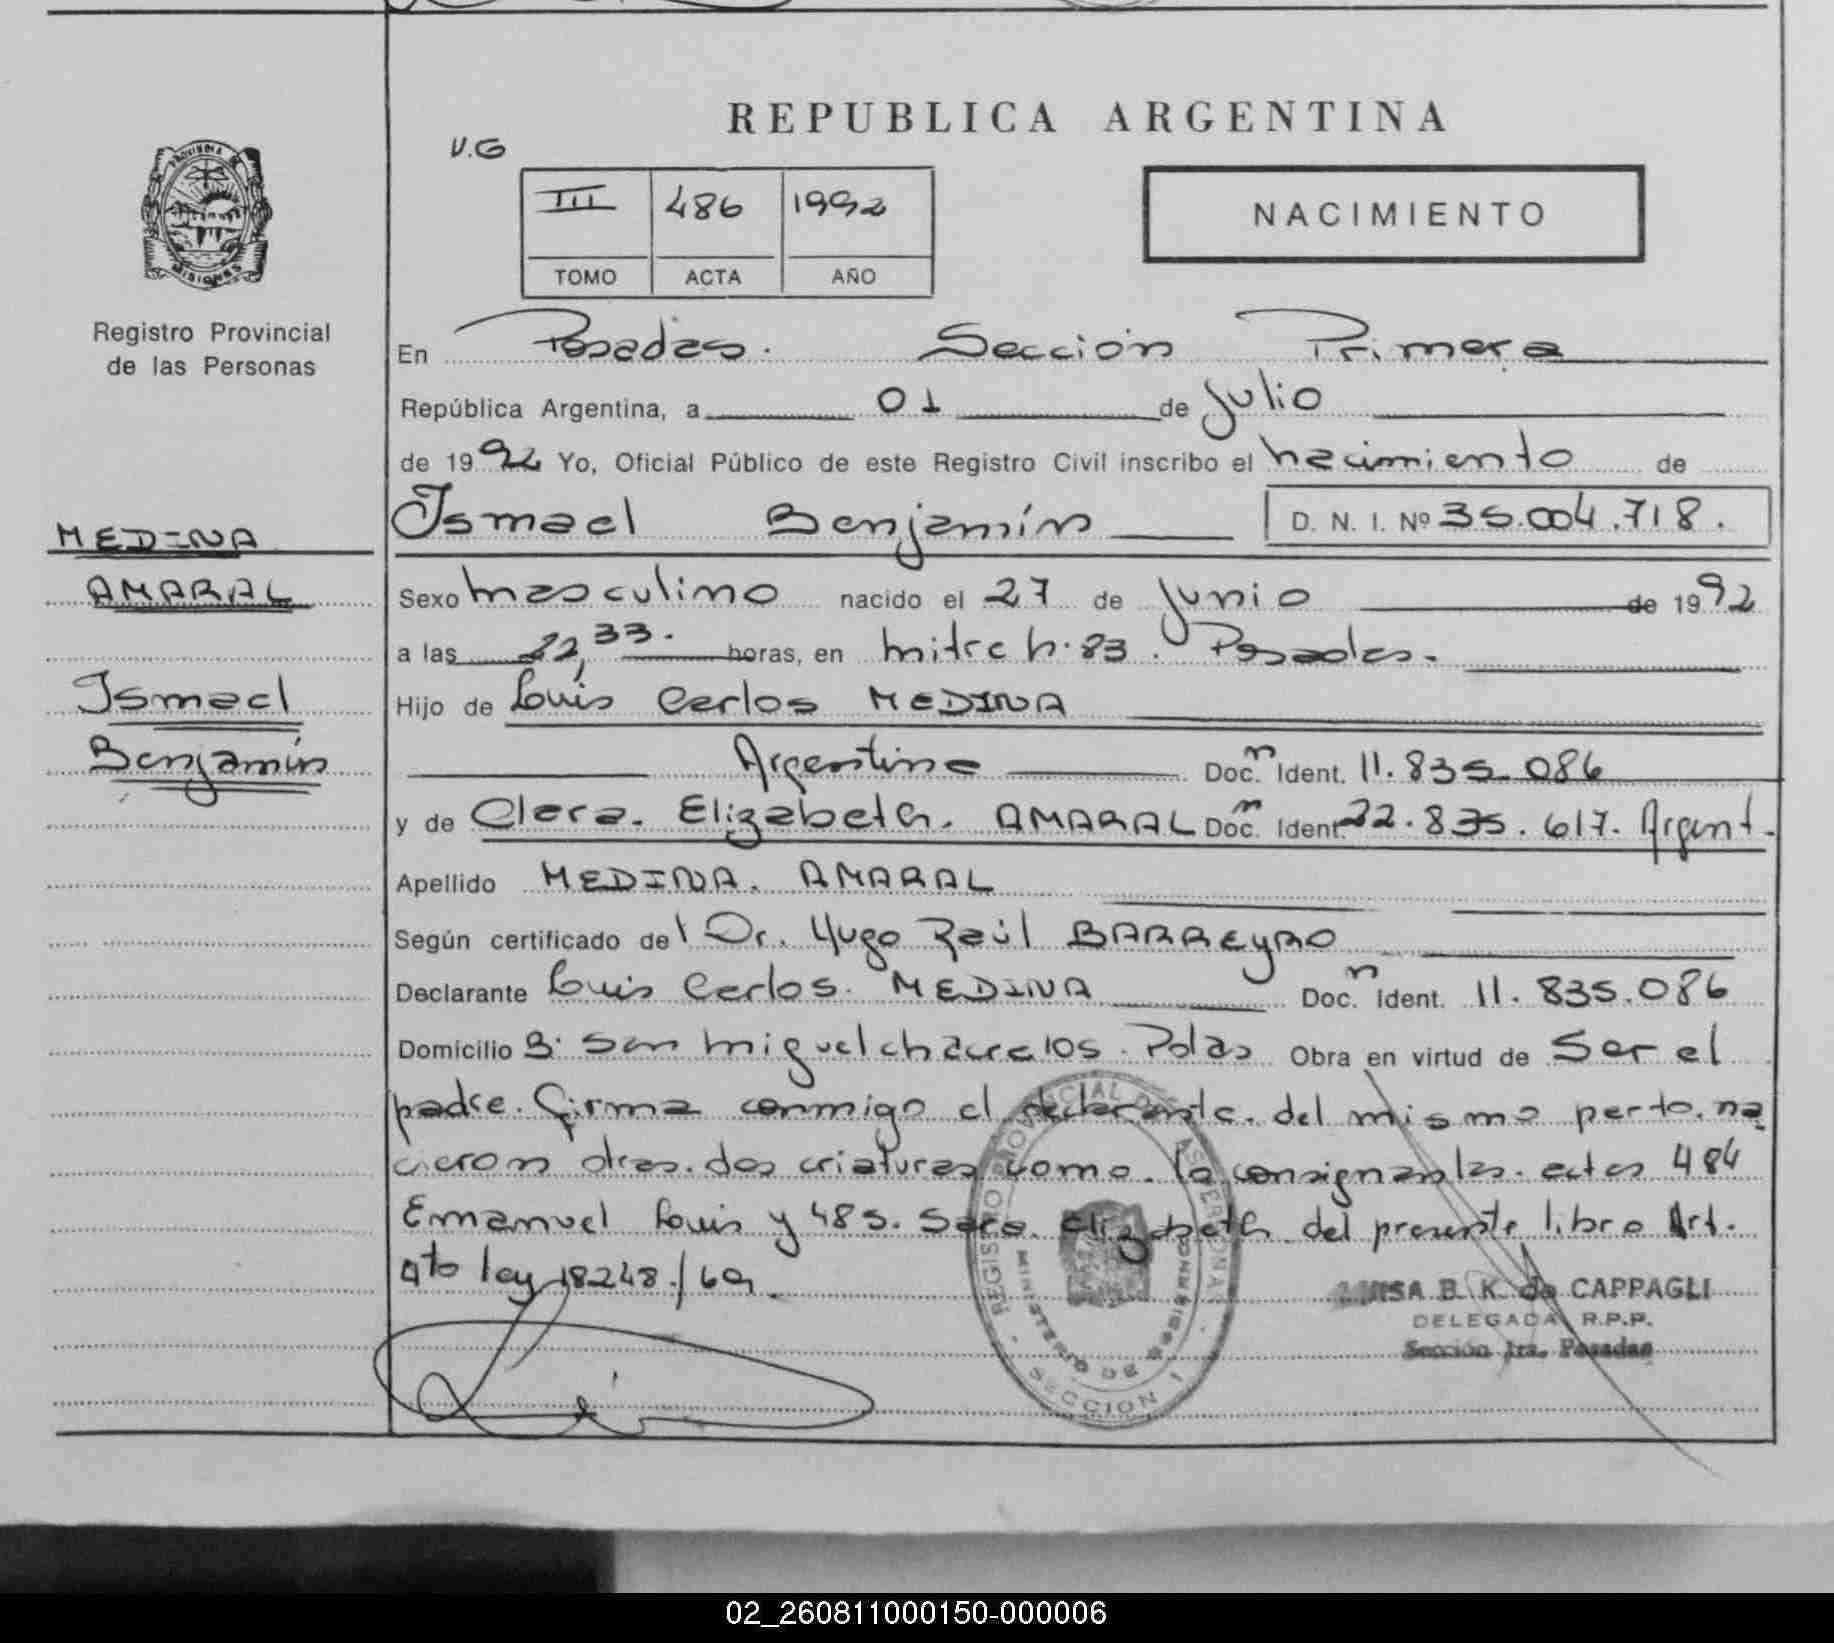 REPUBLICA ARGENTINA
V.G
III 486 1992
TOMO ACTA AÑO
NACIMIENTO
PROVINCIA DE MISIONES
Registro Provincial
de las Personas
En Posadas. Sección Primera
República Argentina, a 01 de Julio
de 1992 Yo, Oficial Público de este Registro Civil inscribo el nacimiento de
Ismael Benjamín D. N. I. Nº 35.004.718.
MEDINA
AMARAL
Ismael
Benjamín
Sexo masculino nacido el 27 de Junio de 1992
a las 22,33. horas, en mitre n. 83. Posadas.
Hijo de Louis Carlos MEDINA
Argentino Doc.n Ident. 11.835.086
y de Clara. Elizabeth. AMARAL Doc.n Ident. 22.835.617. Argent.
Apellido MEDINA. AMARAL
Según certificado del Dr. Hugo Raúl BARREyRO
Declarante Louis Carlos. MEDINA Doc.n Ident. 11.835.086
Domicilio B. San miguel chacra 105. Pdas Obra en virtud de Ser el
padre. firma conmigo el declarante. del mismo parto. na
cieron otras. dos criaturas como. lo consignan las. actas 484
Emanuel Louis y 485. Sara. Elizabeth. del presente libro Art.
4to ley 18248./69
REGISTRO PROVINCIAL DE LAS PERSONAS
MINISTERIO DE GOBIERNO
SECCION 1
LUISA B. K. de CAPPAGLI
DELEGADA R.P.P.
Sección 1ra. Posadas
02_260811000150-000006